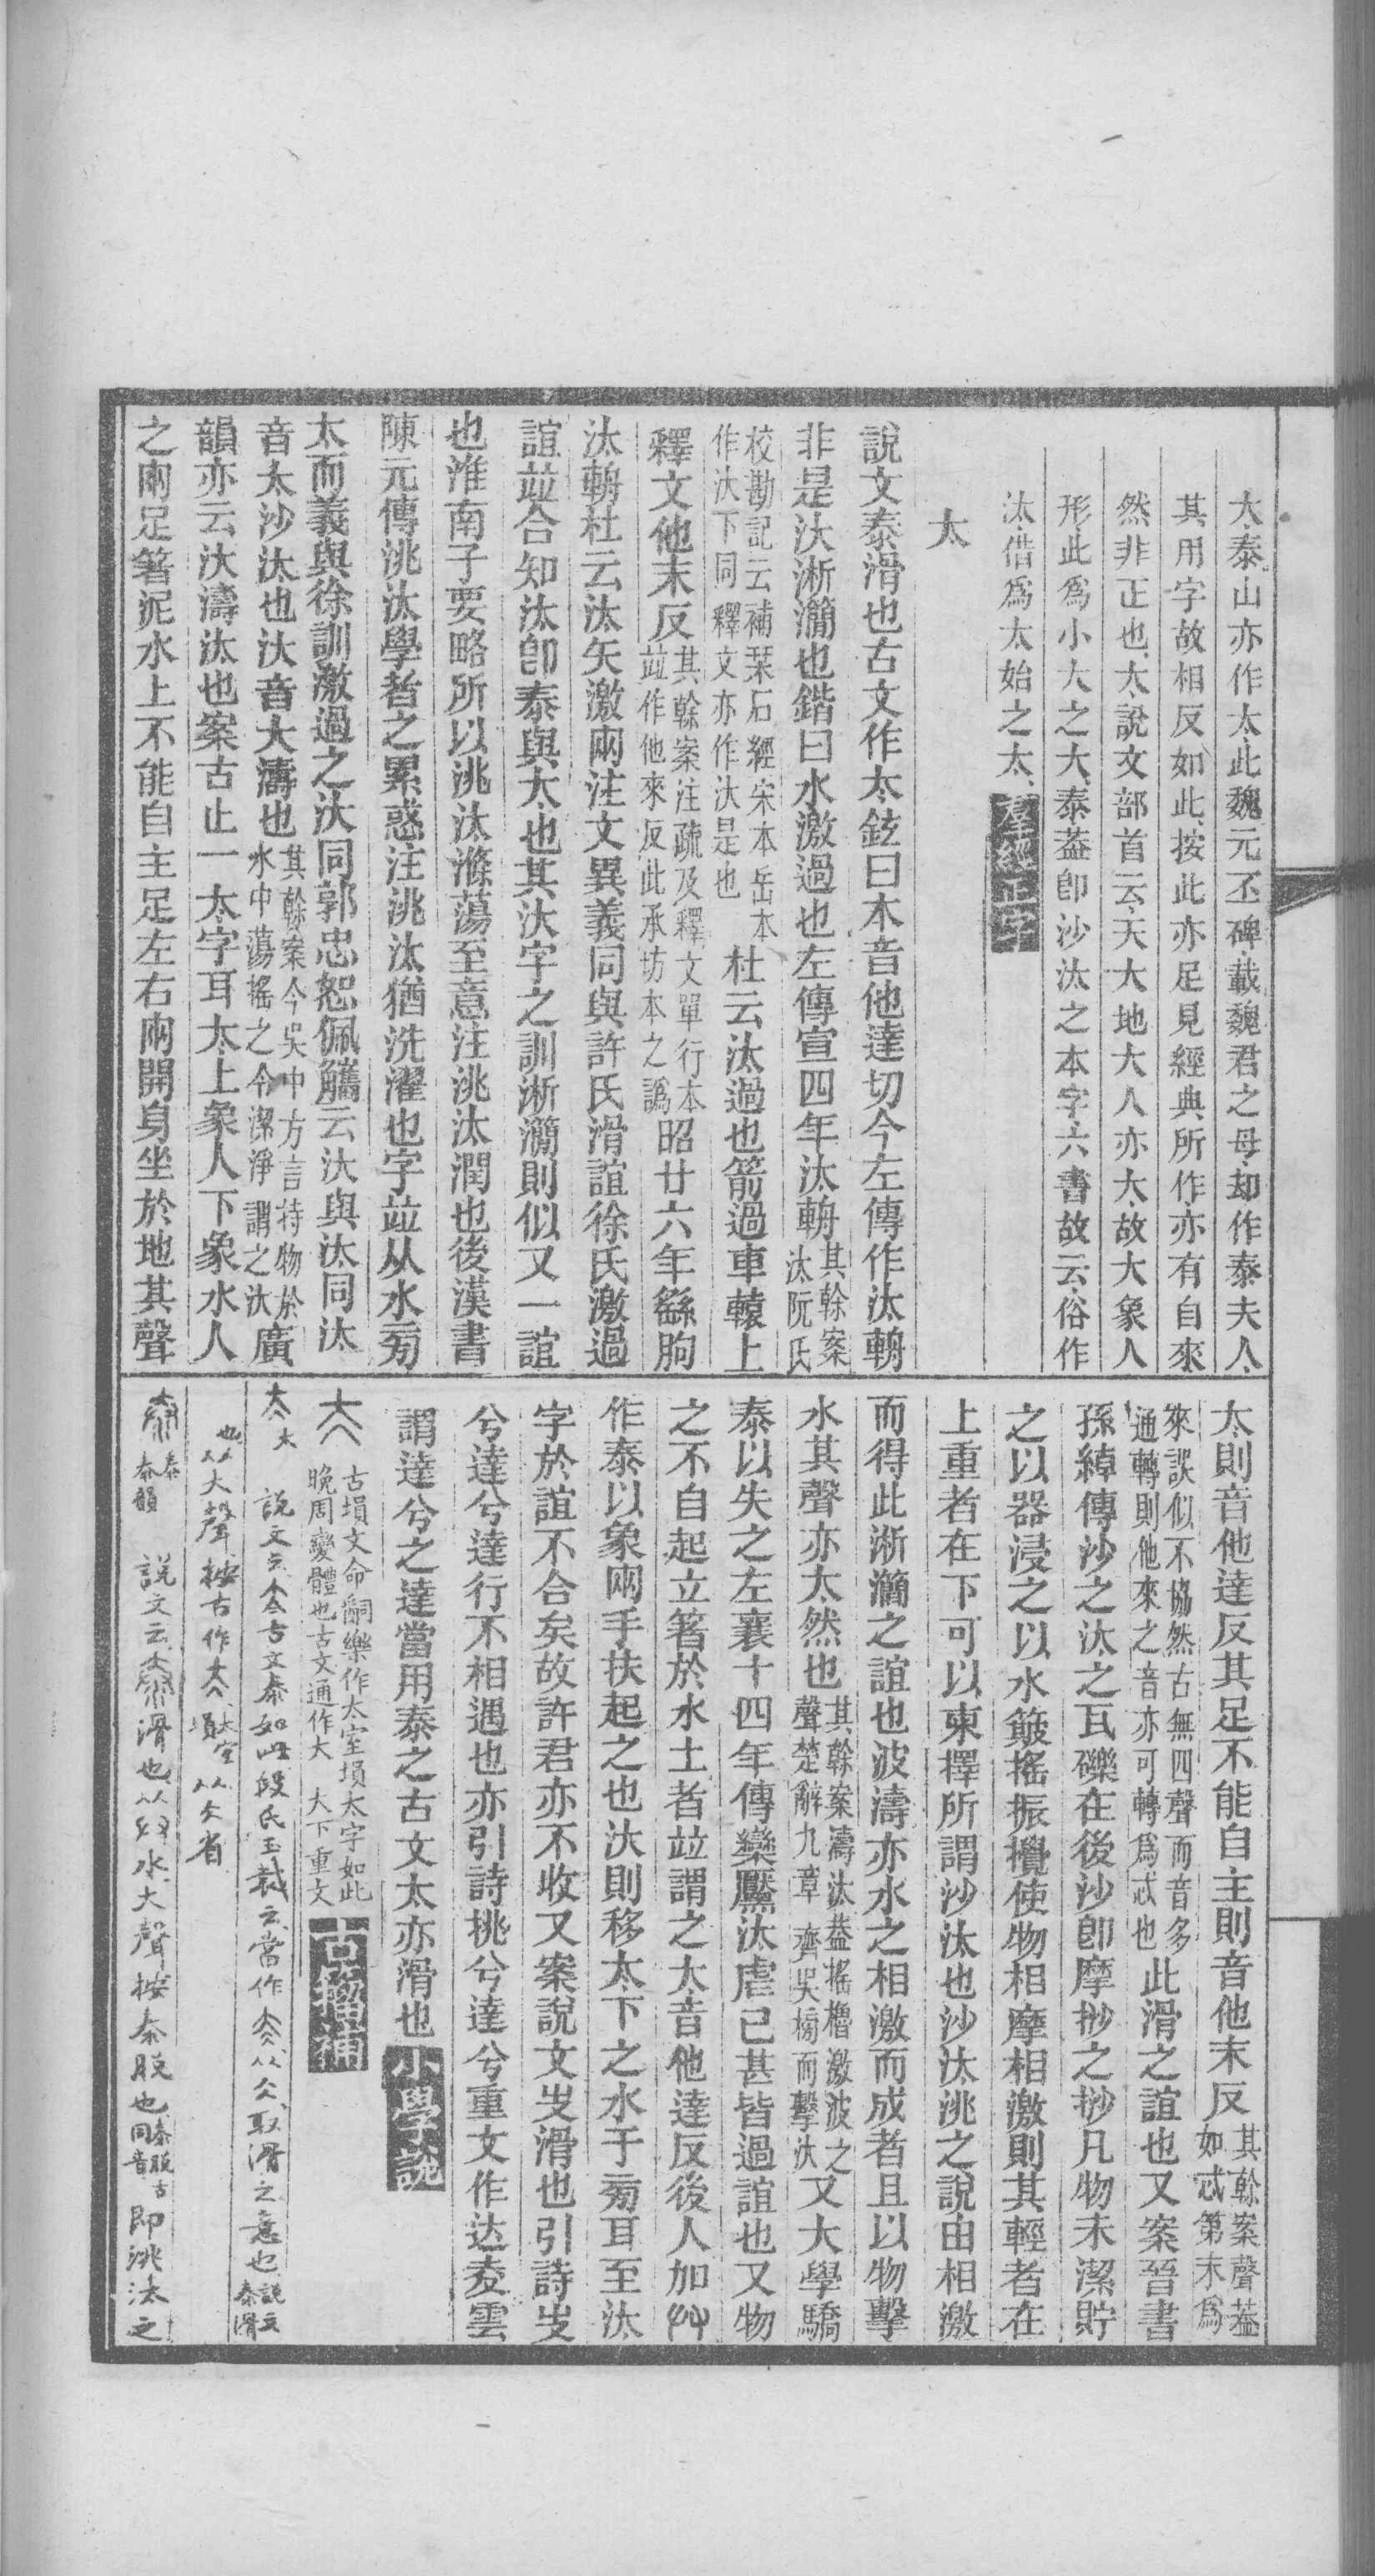 大泰山亦作太此魏元丕碑載魏君之母却作泰夫人
其用字故相反如此按此亦足見經典所作亦有自來
然非正也大說文部首云天大地大人亦大故大象人
形此爲小大之大泰葢卽沙汰之本字六書故云俗作
汰借爲太始之太羣經正字
太
說文泰滑也古文作太鉉曰本音他達切今左傳作汰輈
非是汏淅灡也鍇曰水激過也左傳宣四年汰輈其榦案汰阮氏
校勘記云補栞石經宋本岳本作汏下同釋文亦作汏是也杜云汰過也箭過車轅上
釋文他末反其榦案注疏及釋文單行本竝作他來反此承坊本之譌昭廿六年繇朐
汰輈杜云汰矢激兩注文異義同與許氏滑誼徐氏激過
誼竝合知汰卽泰與太也其汏字之訓淅灡則似又一誼
也淮南子要略所以洮汰滌蕩至意注洮汰潤也後漢書
陳元傳洮汰學者之累惑注洮汰猶洗濯也字竝从水㫄
太而義與徐訓激過之汏同郭忠恕佩觿云汏與汰同汰
音太沙汰也汏音大濤也其榦案今吳中方言持物於水中蕩搖之令潔淨謂之汏廣
韻亦云汏濤汰也案古止一太字耳太上象人下象水人
之兩足箸泥水上不能自主足左右兩開身坐於地其聲
太則音他達反其足不能自主則音他末反其榦案聲葢如忒第末爲
來誤似不協然古無四聲而音多通轉則他來之音亦可轉爲忒也此滑之誼也又案晉書
孫綽傳沙之汰之瓦礫在後沙卽摩挱之挱凡物未潔貯
之以器浸之以水簸搖振攪使物相摩相激則其輕者在
上重者在下可以柬擇所謂沙汰也沙汰洮之說由相激
而得此淅灡之誼也波濤亦水之相激而成者且以物擊
水其聲亦太然也其榦案濤汰葢搖櫓激波之聲楚辭九章齊吳榜而擊汏又大學驕
泰以失之左襄十四年傳欒黶汰虐已甚皆過誼也又物
之不自起立箸於水土者竝謂之太音他達反後人加𠬞
作泰以象兩手扶起之也汏則移太下之水于㫄耳至汰
字於誼不合矣故許君亦不收又案說文㞮滑也引詩㞮
兮達兮達行不相遇也亦引詩挑兮達兮重文作达夌雲
謂達兮之達當用泰之古文太亦滑也小學説
古塤文命𤔲樂作太室塤太字如此晚周變體也古文通作大 大下重文古籀補
說文云古文泰如此段氏玉裁云當作从取滑之意也說文泰滑
也从大聲按古作太室塤从夳省
泰泰韻 說文云滑也从𠬞水大聲按泰脫也泰脫古同音卽洮汰之